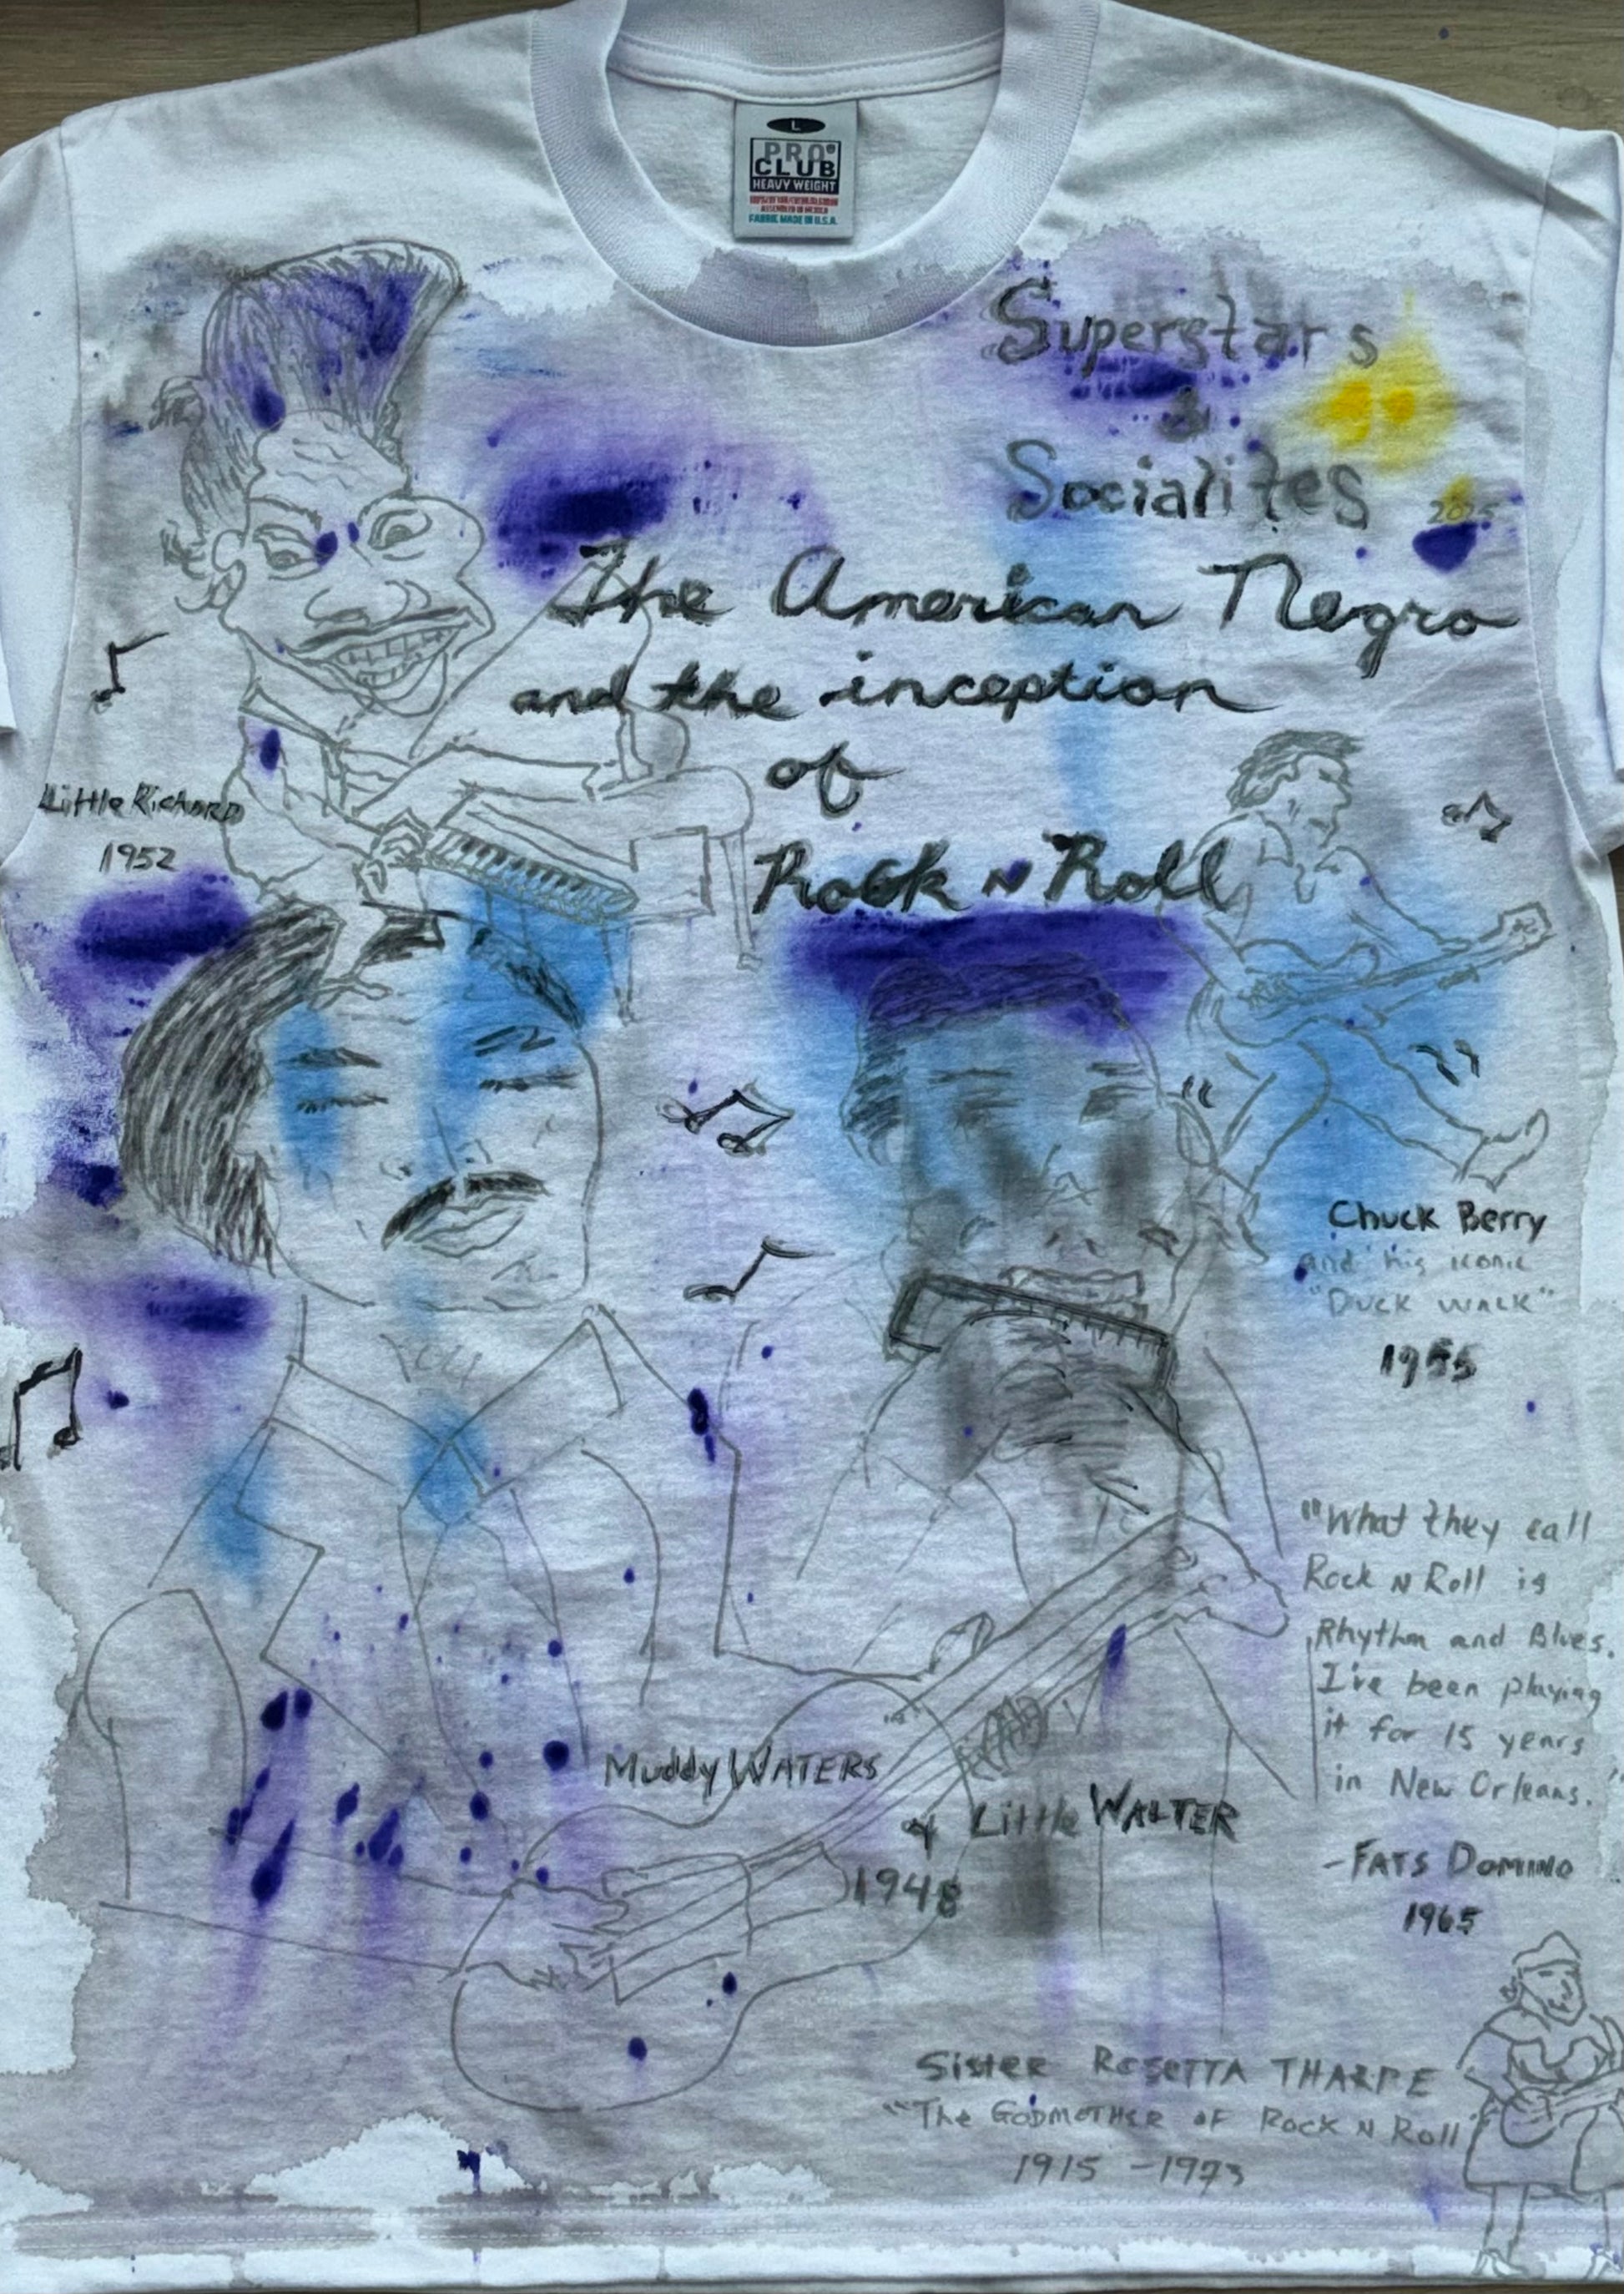 L
PRO
CLUB
HEAVY WEIGHT
ASSEMBLED IN MEXICO
FABRIC MADE IN U.S.A.
Superstars
&
Socialites
2025
The American Negro
and the inception
of
Rock N Roll
Little RichARD
1952
Chuck Berry
and his iconic
"Duck WALK"
1955
"What they call
Rock N Roll is
Rhythm and Blues.
I've been playing
it for 15 years
in New Orleans."
-FATS DOMINO
1965
Muddy WATERS
&
Little WALTER
1948
Sister ROSETTA THARPE
"The GODMOTHER OF ROCK N Roll"
1915 - 1973